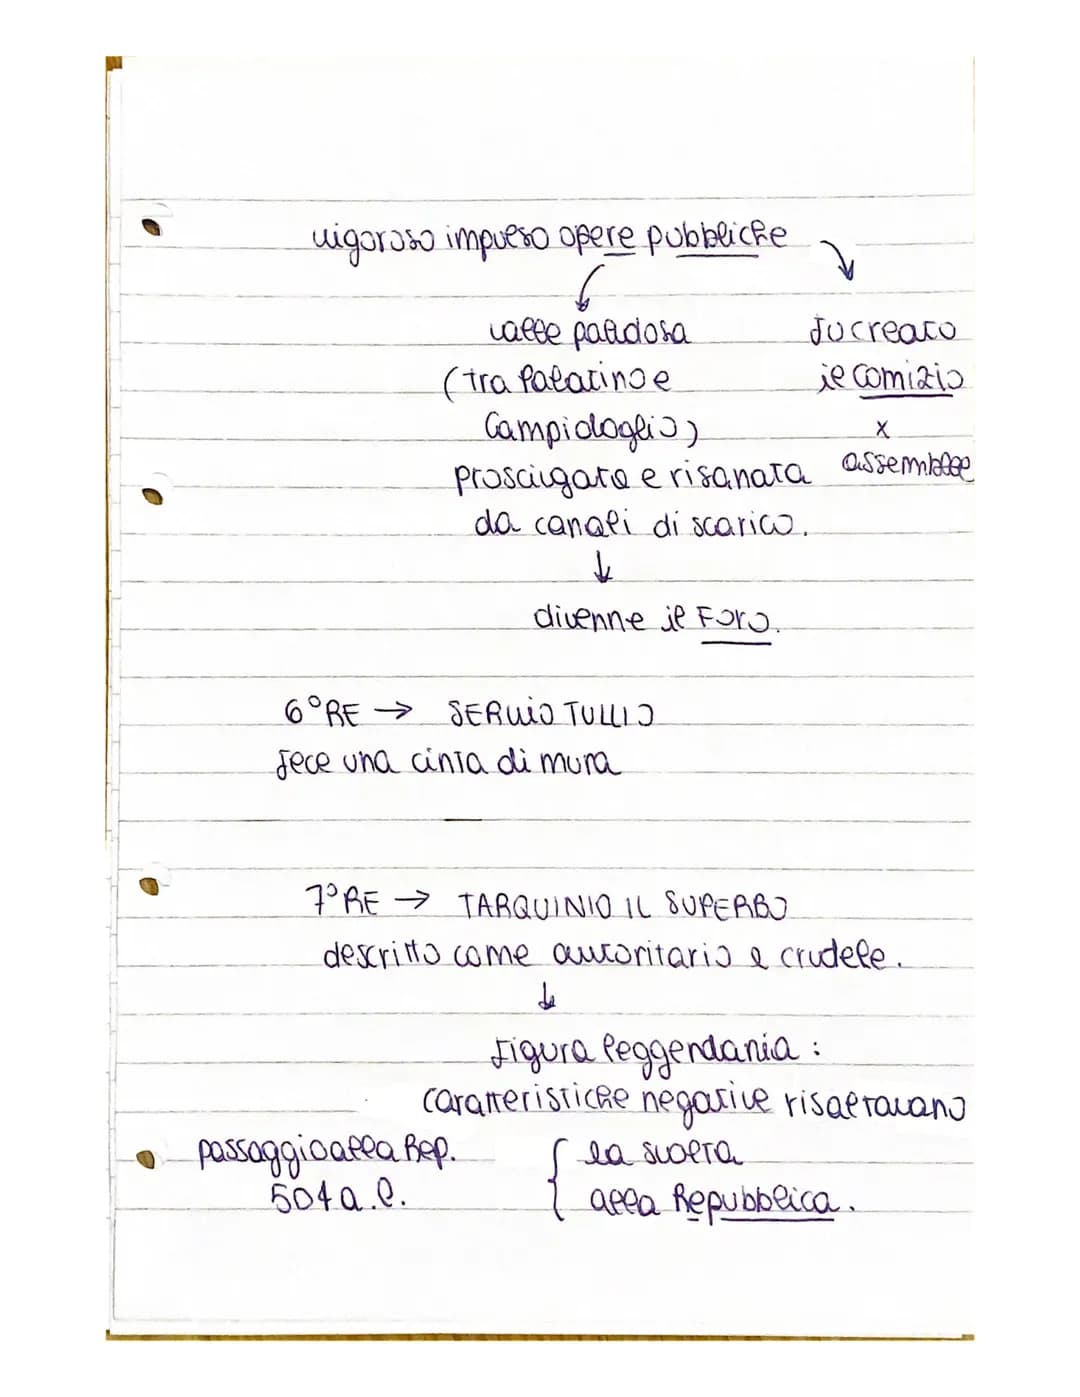 vigoroso impulso opere pubbliche
↙ ↘
valle paludosa fu creato
(tra Palatino e il comizio
Campidoglio) x
prosciugata e risanata assemblee
da canali di scarico.
↓
divenne il Foro.
6° RE → SERVIO TULLIO
fece una cinta di mura
7° RE → TARQUINIO IL SUPERBO
descritto come autoritario e crudele.
↓
figura leggendaria:
caratteristiche negative risaltavano
passaggio alla Rep. { la svolta
504 a.C. alla Repubblica.